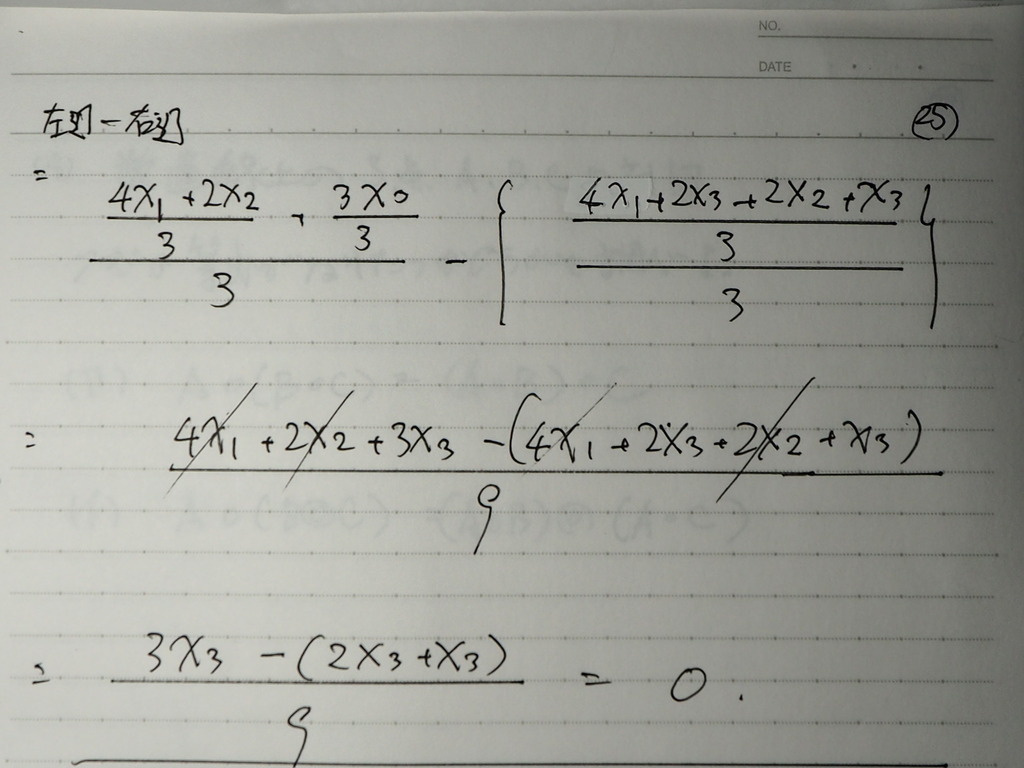 NO.
DATE
左辺－右辺 (25)
= ((4x₁+2x₂)/3 , 3x₀/3)/3 - {((4x₁+2x₃+2x₂+x₃)/3)/3}
= (4x₁+2x₂+3x₃-(4x₁+2x₃+2x₂+x₃))/9
= (3x₃-(2x₃+x₃))/9 = 0.